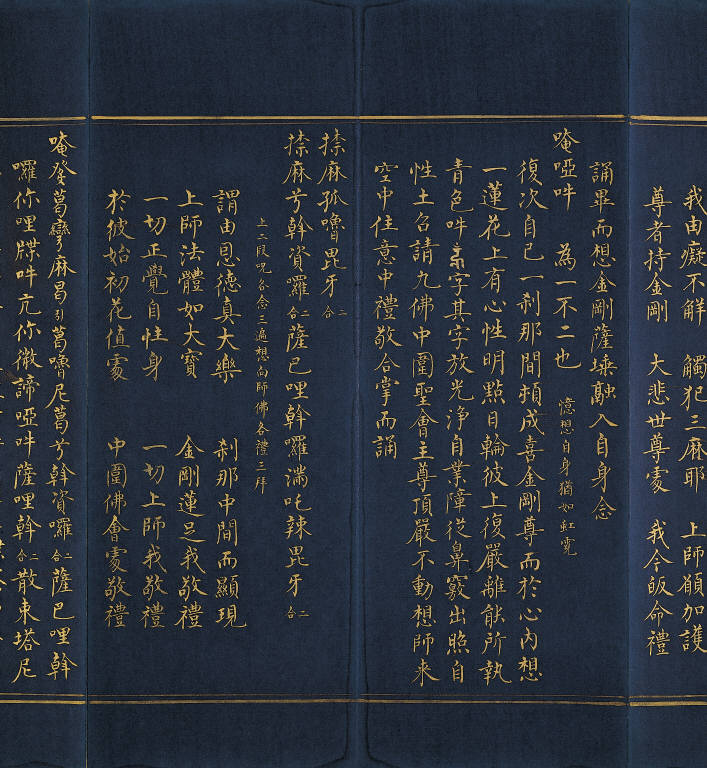 我由癡不解　觸犯三麻耶　上師願加護
尊者持金剛　大悲世尊處　我今皈命禮
誦畢而想金剛薩埵融入自身念
唵啞吽　為一不二也　憶想自身猶如虹霓
復次自己一剎那間頓成喜金剛尊而於心內想
一蓮花上有心性明點日輪彼上復嚴離能所執
青色吽字其字放光淨自業障從鼻竅出照自
性土召請九佛中圍聖會主尊頂嚴不動想師來
空中住意中禮敬合掌而誦
捺麻孤嚕毘牙二合
捺麻兮斡資囉二合薩巴哩斡囉湍吒辣毘牙二合
上二段呪各念三遍想向師佛各禮三拜
謂由恩德真大樂　剎那中間而顯現
上師法體如大寶　金剛蓮足我敬禮
一切正覺自性身　一切上師我敬禮
於彼始初花值處　中圍佛會處敬禮
唵登葛麻曷引葛嚕尼葛兮斡資囉二合薩巴哩斡
囉你哩牒吽亢你微諦啞吽薩哩斡二合散東塔尼